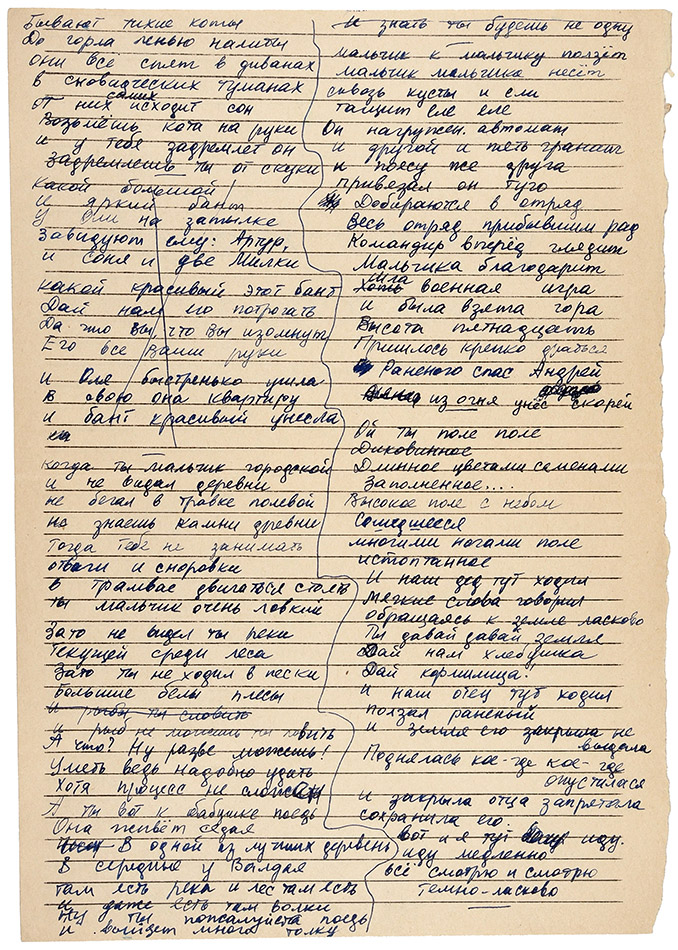 Бывают тихие коты
До горла ленью налиты
они все спят в диванах
в сновидческих туманах
от них самих исходит сон
Возьмёшь кота на руки
и у тебя задремлет он
Задремлешь ты от скуки
какой большой
и яркий бант
у Оли на затылке
Завидуют ему: Артур,
и Соня и две Милки
какой красивый этот бант
Дай нам его потрогать
Да что вы, что вы изомнут
Его все ваши руки
и Оля быстренько ушла
в свою она квартиру
и бант красивый унесла
когда ты мальчик городской
и не видал деревни
не бегал в травке полевой
не знаешь камни древни
Тогда тебе не занимать
отваги и сноровки
в трамвае двигаться стоять
ты мальчик очень ловкий
Зато не видел ты реки
Текущей среди леса
Зато ты не ходил в пески
большие белы плесы
и рыбы ты словить
и рыб не можешь ты ловить
А что? Ну разве можешь!
Уметь ведь надобно удить
Хотя процесс не сложен
А ты вот к бабушке поедь
Она живёт седая
В одной из лучших деревень
В середине у Валдая
там есть река и лес там есть
и даже есть там волки
Ну ты пожалуйста поедь
и выйдет много толку
И знать ты будешь не одну
мальчик к мальчику ползёт
мальчик мальчика несёт
сквозь кусты и ели
тащит еле еле
Он нагружен. автомат
и другой и пять гранат
и поясу же друга
привязал он туго
Добираются в отряд
Весь отряд прибывшим рад
Командир вперёд глядит
Мальчика благодарит
Хоть шла военная игра
и была взята гора
Высота пятнадцать
Пришлось крепко драться
Раненого спас Андрей
из огня унёс скорей
Ой ты поле поле
Диковинное
Длинное цветами семенами
Заполненное....
Высокое поле с небом
Сошедшееся
многими ногами поле
истоптанное
И наш дед тут ходил
Мягкие слова говорил
обращаясь к земле ласково
Ты давай давай земля
Дай нам хлебушка
Дай кормилица.
И наш отец тут ходил
ползал раненый
и земля его закрыла не
выдала
Поднялась кое-где кое-где
опустилася
и закрыла отца запрятала
сохранила его.
Вот и я тут иду.
иду медленно
всё смотрю и смотрю
темно-ласково